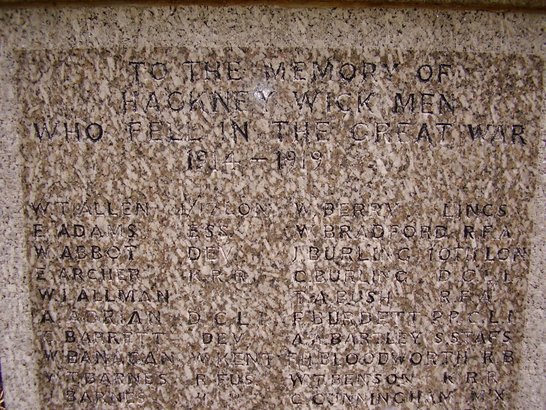 TO THE MEMORY OF
HACKNEY WICK MEN
WHO FELL IN THE GREAT WAR
1914 - 1919
W.T. ALLEN LON W. BERRY LINCS
E. ADAMS ESS W. BRADFORD R.F.A.
W. ABBOT DEV J. BURLING 10TH LON
E. ARCHER K.R.R. C. BURLING D.C.L.I.
W.J. ALLMAN T.A. BUSH R.F.A.
A. ADRIAN D.C.L.I. F. BURDETT P.P.C.L.I.
BARRETT DEV A.A. BARTLEY S.STAFS
W. BANNIGAN W. KENT F.H. BLOODWORTH R.B.
W.T. BARNES R.FUS W.T. BENSON K.R.R.
BARNES C. CUNNINGHAM MX